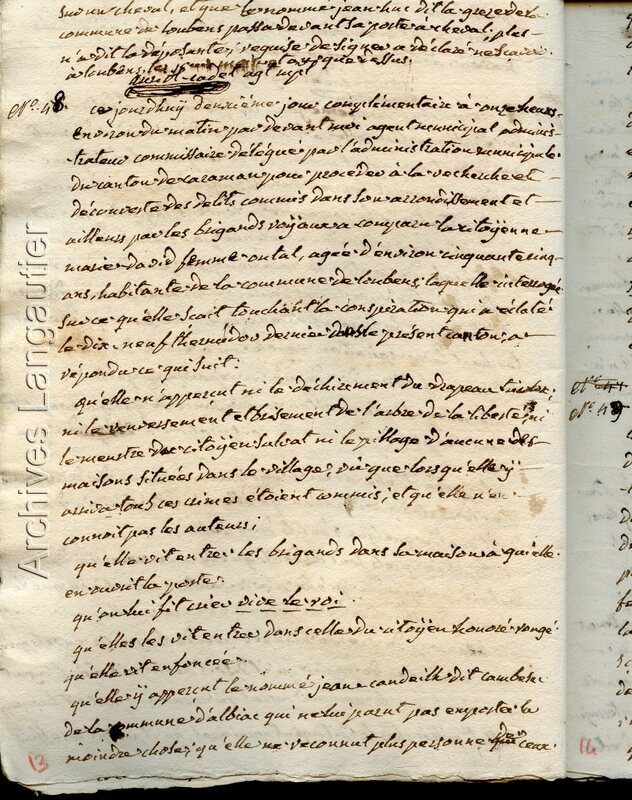 sur un cheval, et que le nommé jean huc dit la greze de la
commune de loubens passa devant sa porte à cheval, plus
n'a dit la déposante, requise de signer a déclaré ne scavoir
à loubens, les jour mois et an que dessus.
agt mpl
N.° 48.
ce jourdhuy deuxième jour complémentaire à onze heures
Environ du matin par devant moi agent municipal adminis-
trateur commissaire délégué par l'administration municipale
du canton de caraman pour procéder à la recherche et
découverte des delits commis dans son arrondissement et
ailleurs par les brigands royaux a comparu la citoyenne
marie david femme ontal, agée d'environ cinquante cinq
ans, habitante de la commune de loubens; laquelle interrogée
sur ce qu'elle scait touchant la conspiration qui a éclaté
le dix neuf thermidor dernier dans le présent canton, a
répondu ce qui suit:
qu'elle n'apperçut ni le déchirement du drapeau tricolore,
ni le renversement et brisement de l'arbre de la liberté, ni
le meurtre du citoyen salvat ni le pillage d'aucune des
maisons situées dans le village, vu que lorsqu'elle ÿ
arriva touts ces crimes étoient commis, et qu'elle n'en
connoit pas les auteurs;
qu'elle vit entrer les brigands dans sa maison à qui elle
en ouvrit la porte.
qu'on lui fit crier vive le roi.
qu'elles les vit entrer dans celle du citoyen honoré rougé
qu'elle vit enfoncée.
qu'elle ÿ apperçut le nommé jean candeilh dit cambesc
de la commune d'albiac qui ne lui parut pas emporter la
moindre chose, qu'elle ne reconnut plus personne ceux
13
N.° 49
14
Archives Langautier